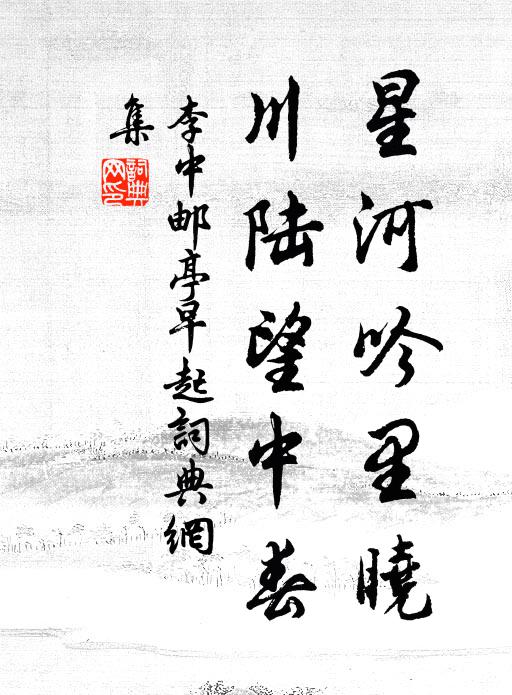 星河吟里曉
川陆望中春
李中邮亭早起詞典網
集
詞典网印